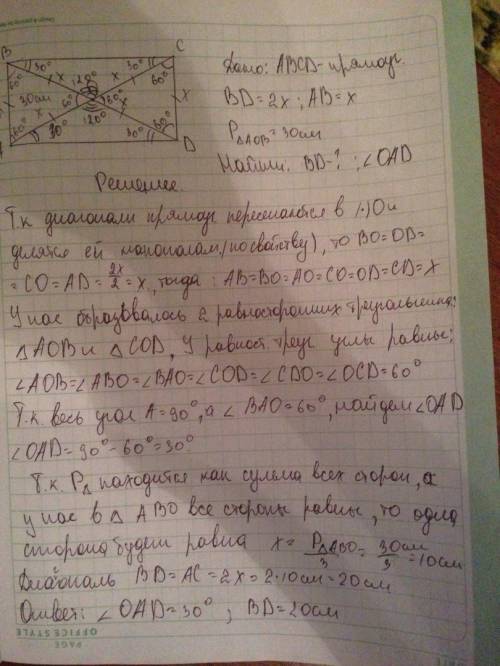 B C
30° 120° 30°
60° x x 60°
30см 60° 60° x
60° 120° 60°
30° 30°
D
Дано: ABCD - прямоуг.
BD = 2x ; AB = x
P△AOB = 30см
Найти: BD - ? ; ∠OAD
Решение.
Т.к диагонали прямоуг пересекаются в (·) O и
делятся ей напополам (по свойству), то BO = OD =
= CO = AD = 2x/2 = x, тогда : AB = BO = AO = CO = OD = CD = x
У нас образовалось 2 равносторонних треугольника:
△AOB и △COD, У равност. треуг углы равны:
∠AOB = ∠ABO = ∠BAO = ∠COD = ∠CDO = ∠OCD = 60°
Т.к. весь угол A = 90°, а ∠BAO = 60°, найдем ∠OAD
∠OAD = 90° - 60° = 30°
Т.к. P△ находится как сумма всех сторон, а
у нас в △ ABO все стороны равны, то одна
сторона будет равна x = P△ABO/3 = 30см/3 = 10см
Диагональ BD = AC = 2x = 2·10см = 20см
Ответ: ∠OAD = 30° ; BD = 20см
PAGE
OFFICE STYLE